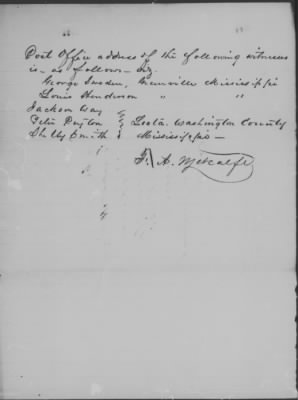 Post Office address of the following witnesses
is - as follows - viz
George Sweden, Greenville Mississippi
Louis Henderson " "
Jackson Way }
Peter Peyton } Leota Washington County
Shelby Smith } Mississippi -
F. A. Metcalfe